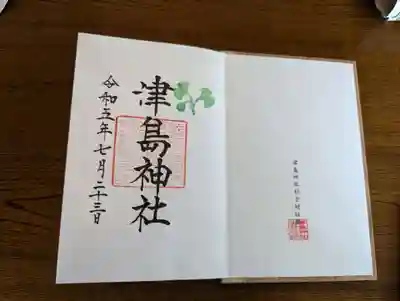 津島神社
令和五年七月二十三日